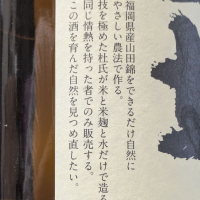 福岡県産山田錦をできるだけ自然に
やさしい農法で作る。
技を極めた杜氏が米と米麹と水だけで造る
同じ情熱を持った者でのみ販売する。
この酒を育んだ自然を見つめ直したい。